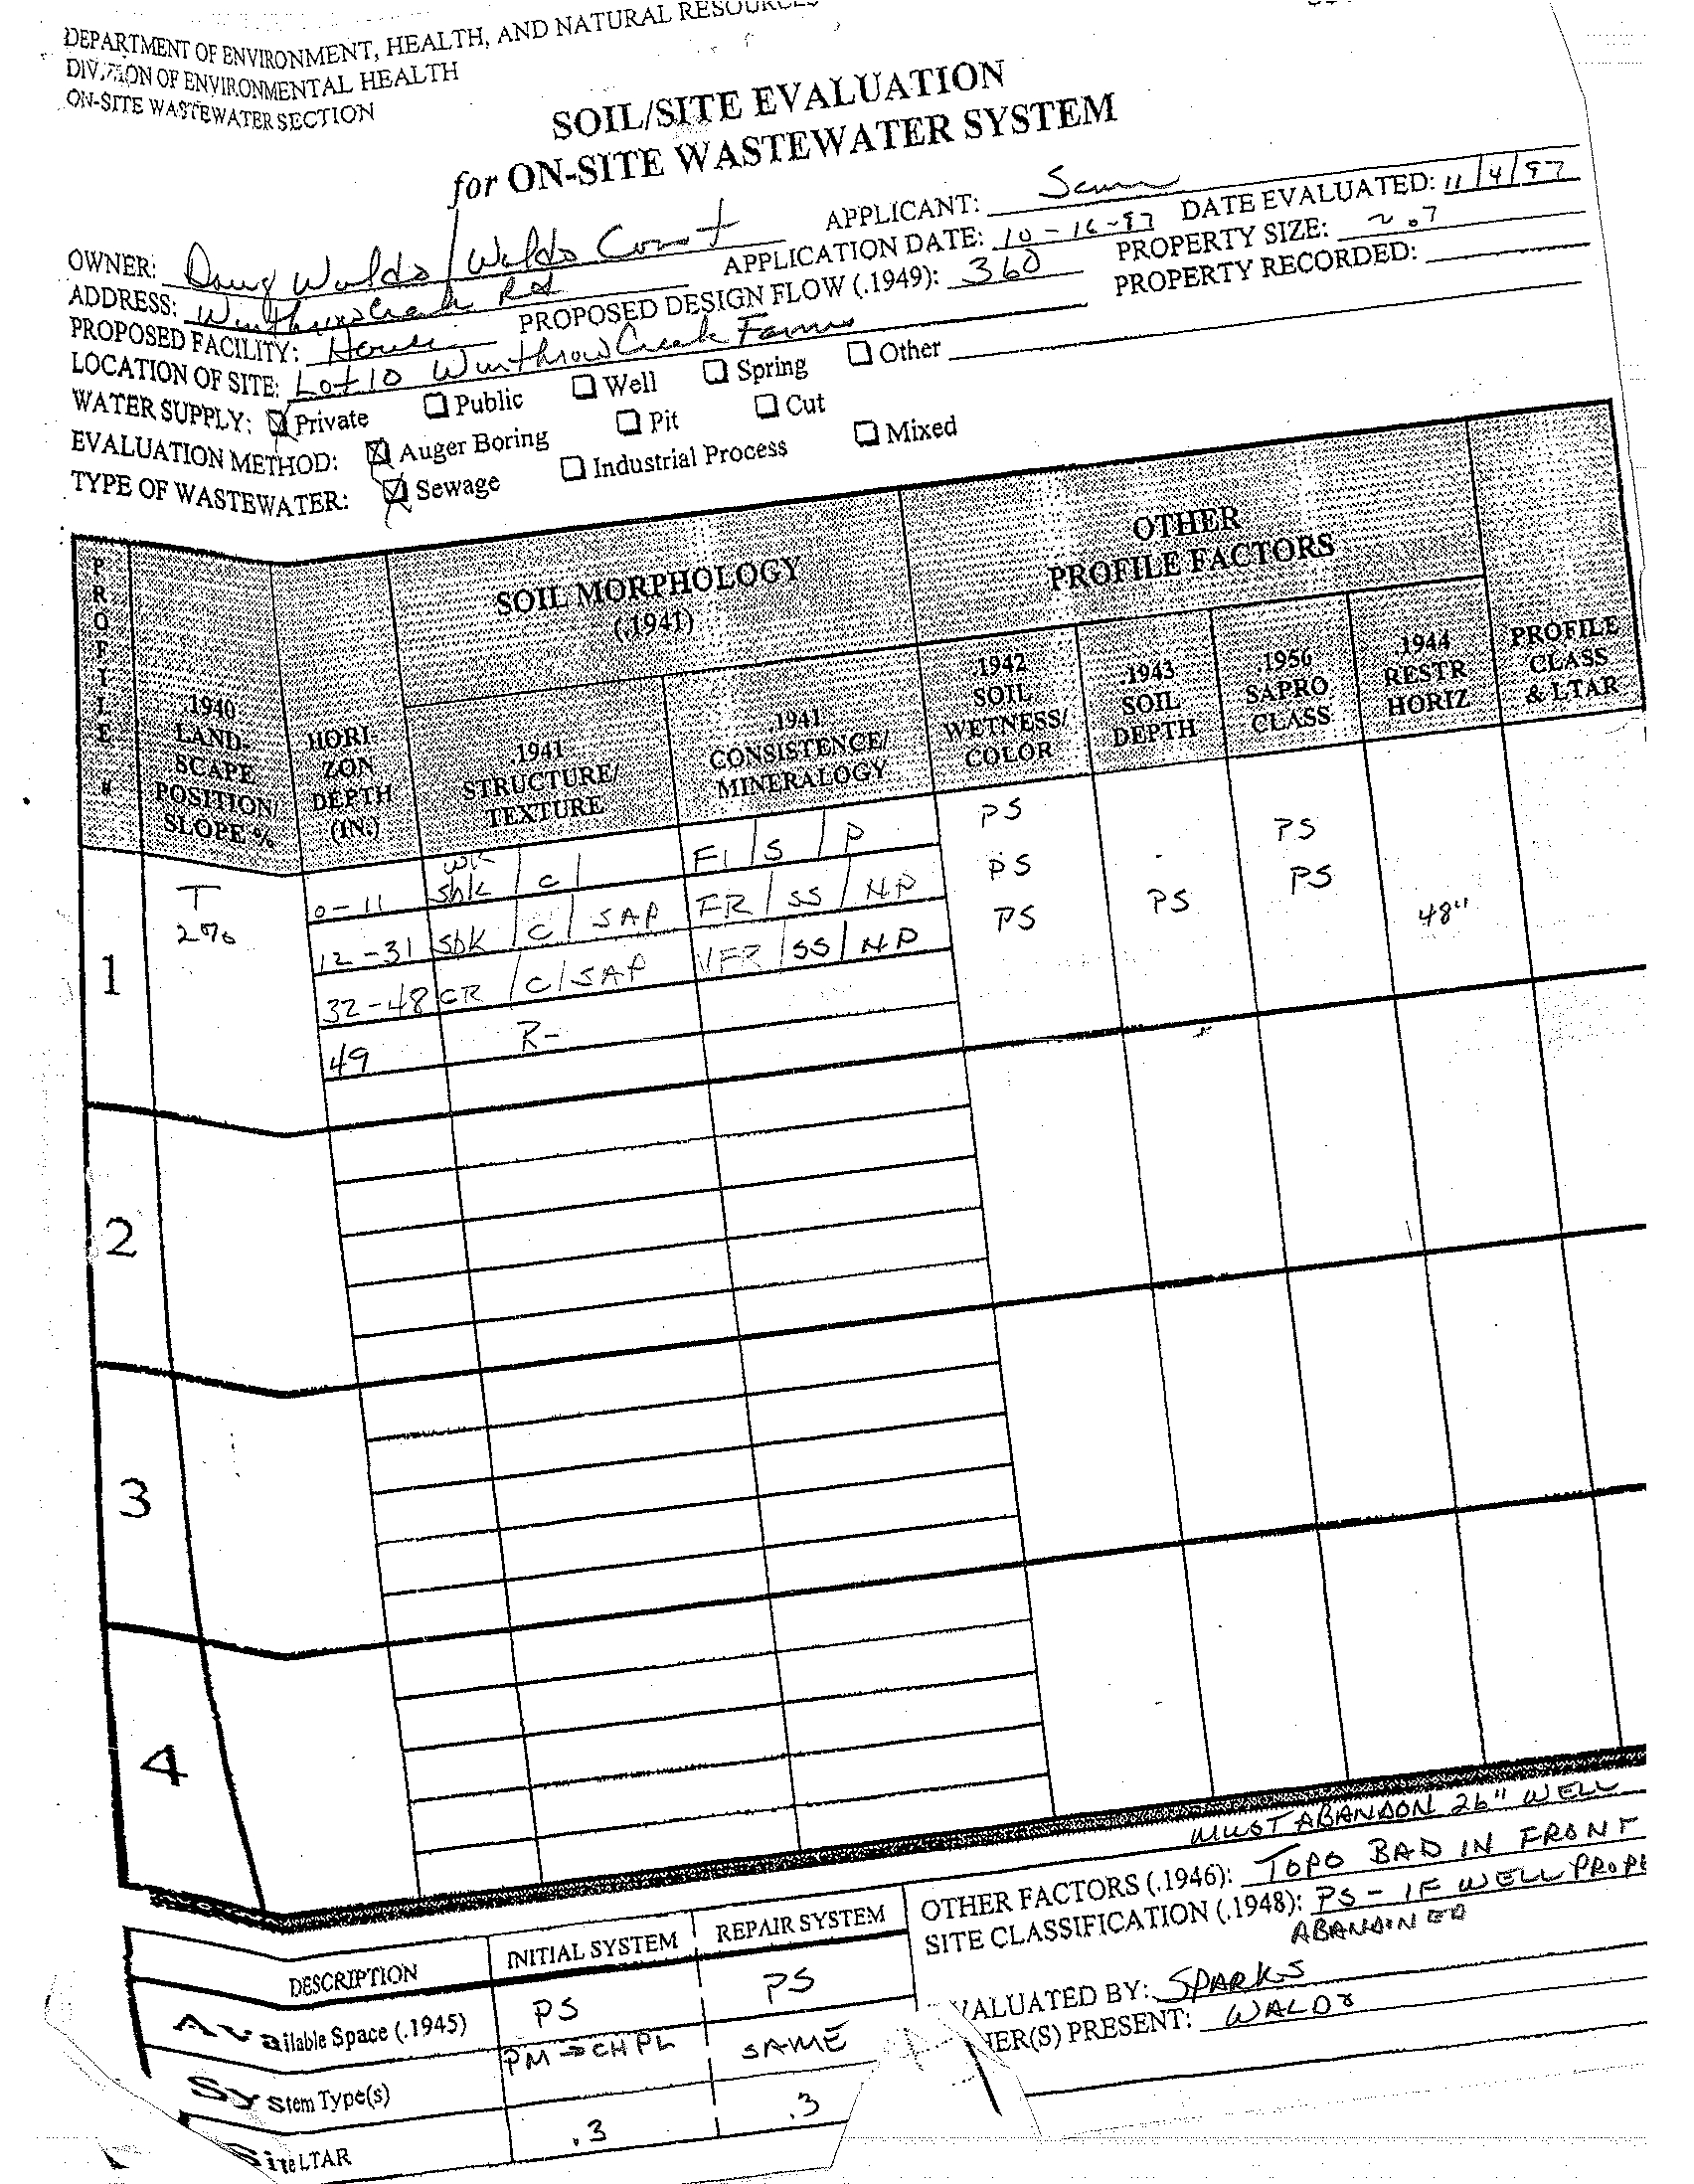 DEPARTMENT OF ENVIRONMENT, HEALTH, AND NATURAL RESOURCES
DIVISION OF ENVIRONMENTAL HEALTH
ON-SITE WASTEWATER SECTION
SOIL/SITE EVALUATION
for ON-SITE WASTEWATER SYSTEM
OWNER: Doug Waldo / Waldo Const APPLICANT: Same
ADDRESS: Winthrow Creek Rd APPLICATION DATE: 10-16-97 DATE EVALUATED: 11/4/97
PROPOSED FACILITY: House PROPOSED DESIGN FLOW (.1949): 360 PROPERTY SIZE: ~.7
LOCATION OF SITE: Lot 10 Winthrow Creek Farms PROPERTY RECORDED:
WATER SUPPLY: ☒ Private ☐ Public ☐ Well ☐ Spring ☐ Other
EVALUATION METHOD: ☒ Auger Boring ☐ Pit ☐ Cut
TYPE OF WASTEWATER: ☒ Sewage ☐ Industrial Process ☐ Mixed
PROFILE #
.1940 LANDSCAPE POSITION/ SLOPE %
HORIZON DEPTH (IN.)
SOIL MORPHOLOGY (.1941)
.1941 STRUCTURE/ TEXTURE
.1941 CONSISTENCE/ MINERALOGY
OTHER PROFILE FACTORS
.1942 SOIL WETNESS/ COLOR
.1943 SOIL DEPTH
.1956 SAPRO CLASS
.1944 RESTR HORIZ
PROFILE CLASS & LTAR
1 T 2%
0-11 wk sbk / C / FI / S / P PS PS
12-31 sbk / C / SAP FR / SS / NP PS PS
32-48 CR / C / SAP VFR / SS / NP PS PS 48"
49 R-
2
3
4
MUST ABANDON 26" WELL
OTHER FACTORS (.1946): TOPO BAD IN FRONT
SITE CLASSIFICATION (.1948): PS - IF WELL PROPE
ABANDONED
EVALUATED BY: SPARKS
HER(S) PRESENT: WALDO
DESCRIPTION INITIAL SYSTEM REPAIR SYSTEM
Available Space (.1945) PS PS
System Type(s) PM → CHPL SAME
Site LTAR .3 .3